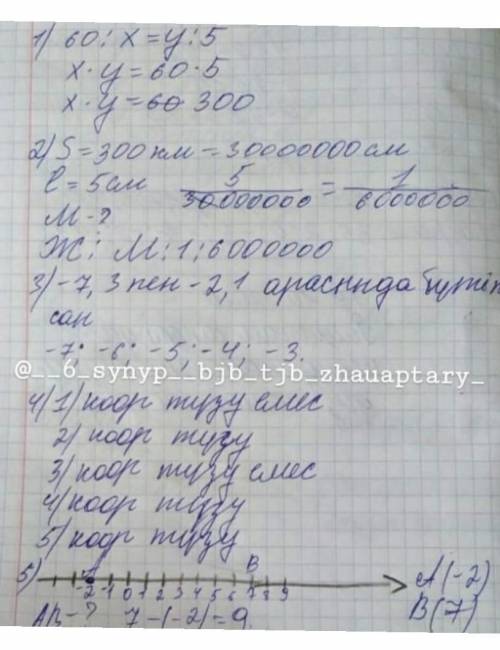 1) 60 : x = y : 5
x · y = 60 · 5
x · y = 60 300
2) S = 300 км = 30000000 см
l = 5 см 5/30000000 = 1/6000000
М - ?
Ж: М: 1 : 6000000
3) -7,3 пен -2,1 арасында бүтін
сан
-7; -6; -5; -4; -3.
@__6_synyp__bjb_tjb_zhauaptary_
4) 1) коор түзу емес
2) коор түзу
3) коор түзу емес
4) коор түзу
5) коор түзу
5) A B A(-2)
-2 -1 0 1 2 3 4 5 6 7 8 9 B(7)
AB - ? 7 - (-2) = 9.